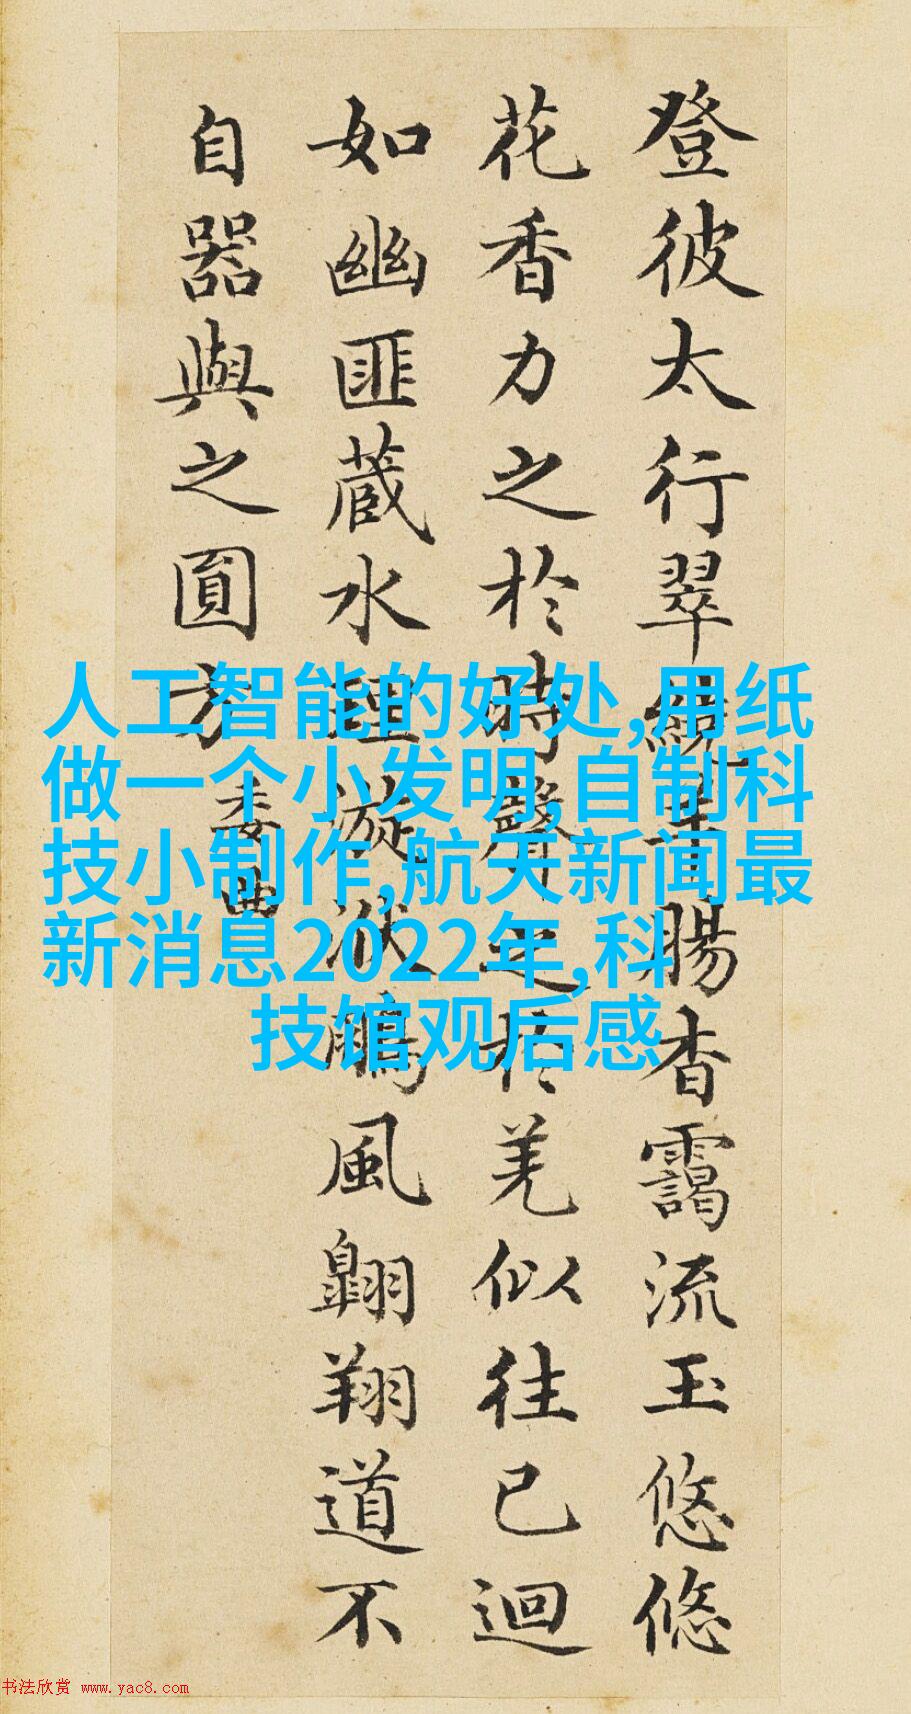 登彼太行翠繞羊腸杳靄流玉悠悠
花香力之於時聲之於羌似往已迴
如幽匪蔵水理漩洑鵬風翺翔道不
自器與之圎方
委曲
人工智能的好处,用纸
做一个小发明,自制科
技小制作,航天新闻最
新消息2022年,科
技馆观后感
书法欣赏 www.yac8.com